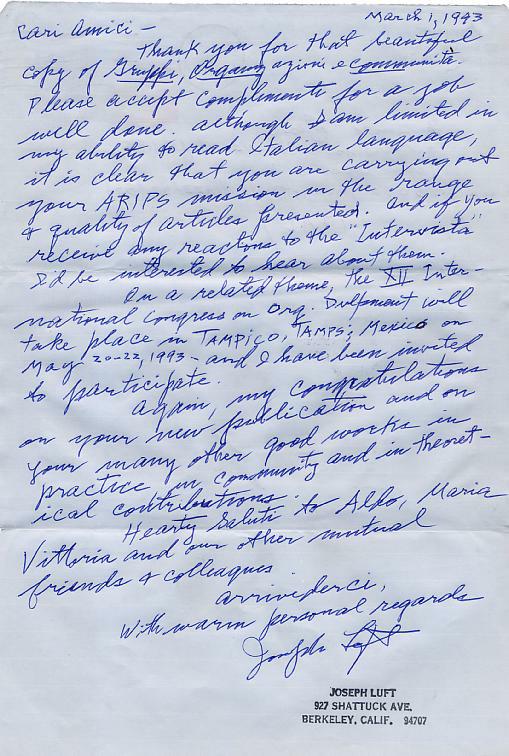 March 1, 1993
Cari Amici –
Thank you for that beautiful
copy of Gruppi, Organizazione e communità.
Please accept compliments for a job
well done. Although I am limited in
my ability to read Italian language,
it is clear that you are carrying out
your ARIPS mission in the range
& quality of articles presented. And if you
receive any reactions to the "Intervista"
I'd be interested to hear about them.
On a related theme, the XII Inter-
national Congress on Org. Dvlpment will
take place in TAMPICO, TAMPS; Mexico on
May 20-22, 1993 - and I have been invited
to participate.
Again, my congratulations
on your new publication and on
your many other good works in
practice in community and in theoret-
ical contributions.
Hearty Saluti to Aldo, Maria
Vittoria and our other mutual
friends & colleagues
arrivederci,
With warm personal regards
Joseph Luft
JOSEPH LUFT
927 SHATTUCK AVE.
BERKELEY, CALIF. 94707